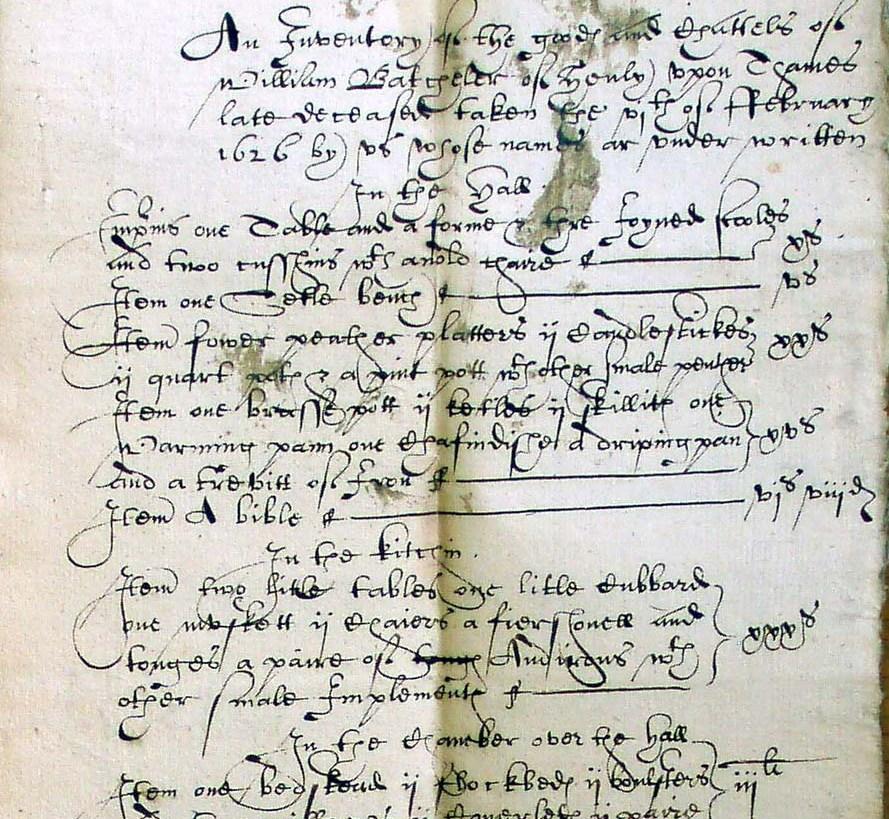 An Inventory of the goods and Chattels of
William Batcheler of Henly vpon Thames
late deceased taken the vith of ffebruary
1626 by vs whose names ar vnder written
In the Hall
Impins one Table and a forme & thre Joyned stooles
and two cusshins wth anold chaire xs
Item one Setle bench vs
Item fower peather platters ii Candlestickes
ii quart pots & a pint pott wth other smale pewter xxs
Item one brasse pott ii ketles ii skillits one
Warming pann one Chafindishe a driping pan xvs
and a trevitt of Iron
Item A bible vjs viiid
In the kitchin
Item two litle tables one litle Cubbard
one muskett ii Chaiers a fiershovell and
tonges a paire of Andirons wth xxxs
other smale Implements
In the Chamber over the Hall
Item one bedstead ii flockbeds ii boulsters iiili
ii Coverleds ii paire